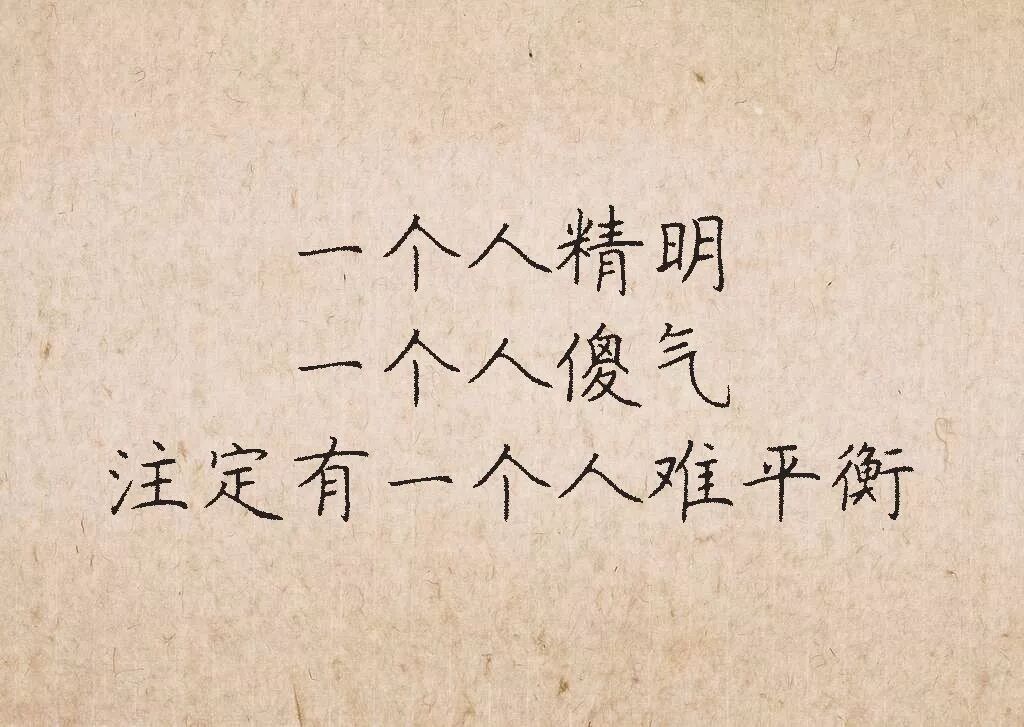 一个人精明
一个人傻气
注定有一个人难平衡